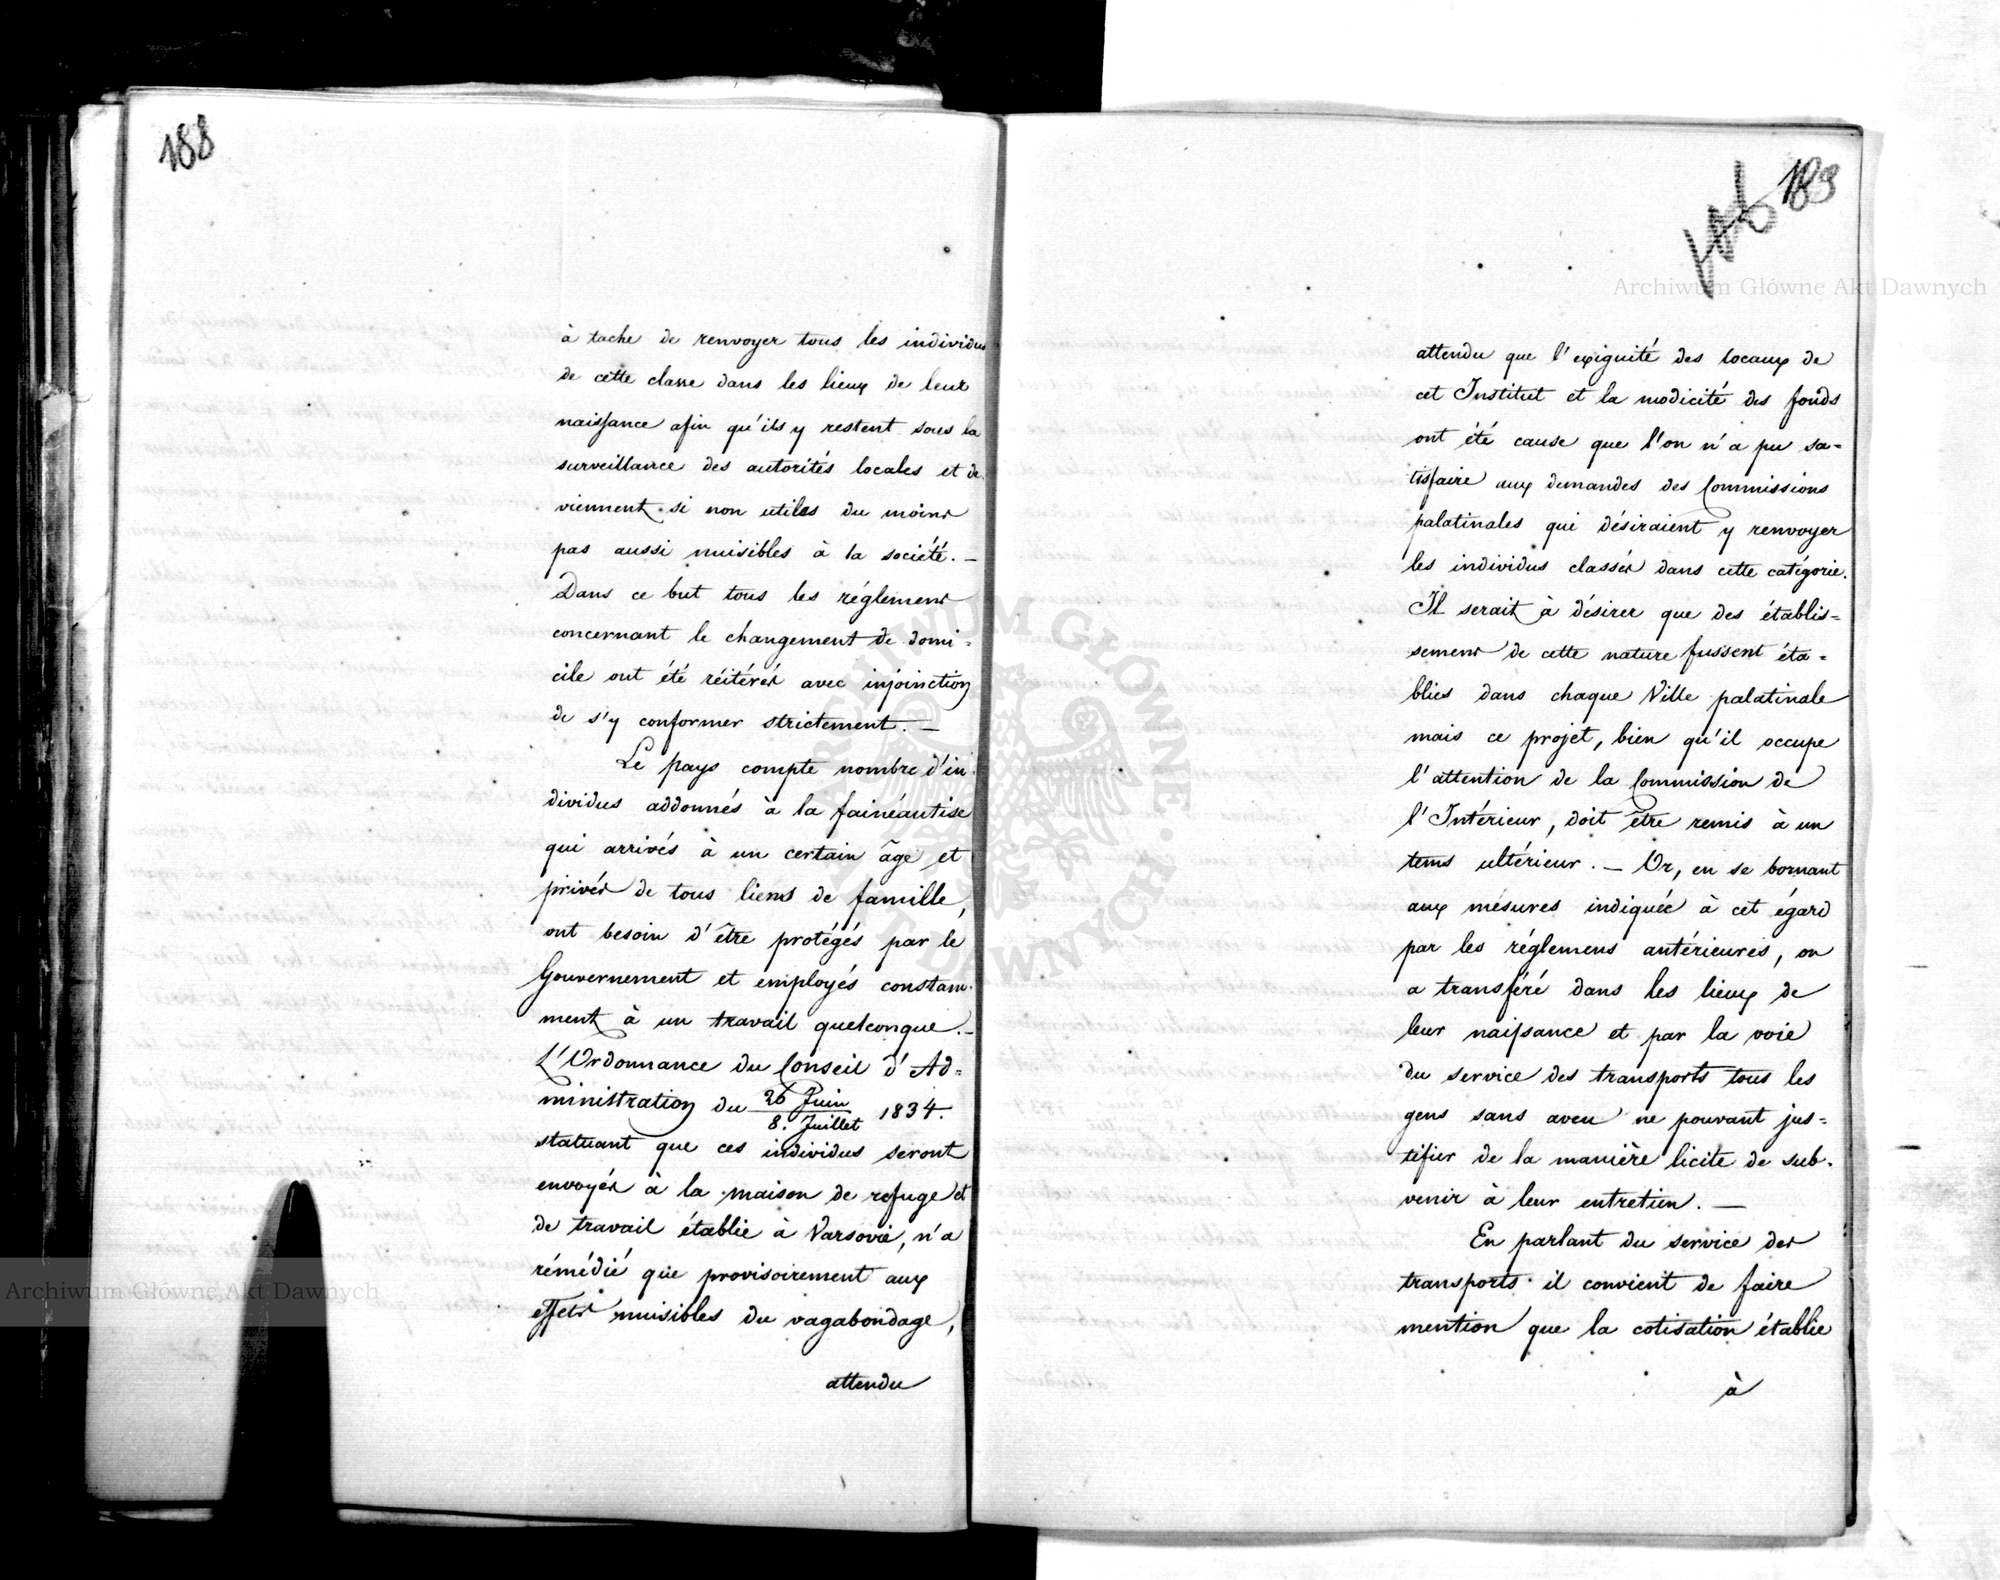 188
à tache de renvoyer tous les individus
de cette classe dans les lieux de leur
naissance afin qu'ils y restent sous la
surveillance des autorités locales et de
viennent si non utiles du moins
pas aussi nuisibles à la société. —
Dans ce but tous les réglemens
concernant le changement de domi-
cile ont été réitérés avec injoinction
de s'y conformer strictement. —
Le pays compte nombre d'in-
dividus addonnés à la fainéantise
qui arrivés à un certain âge et
privés de tous liens de famille,
ont besoin d'être protégés par le
Gouvernement et employés constam-
ment à un travail quelconque. —
L'Ordonnance du Conseil d'Ad=
ministration du 26 Juin / 8. Juillet 1834.
statuant que ces individus seront
envoyés à la maison de refuge et
de travail établie à Varsovie, n'a
rémédié que provisoirement aux
effets nuisibles du vagabondage,
attendu
189
attendu que l'exiguité des locaux de
cet Institut et la modicité des fonds
ont été cause que l'on n'a pu sa=
tisfaire aux demandes des Commissions
palatinales qui désiraient y renvoyer
les individus classés dans cette catégorie.
Il serait à désirer que des établis=
semens de cette nature fussent éta=
blies dans chaque Ville palatinale
mais ce projet, bien qu'il occupe
l'attention de la Commission de
l'Intérieur, doit être remis à un
tems ultérieur. — Or, en se bornant
aux mésures indiquée à cet égard
par les réglemens antérieures, on
a transféré dans les lieux de
leur naissance et par la voie
du service des transports tous les
gens sans aveu ne pouvant jus=
tifier de la manière licite de sub-
venir à leur entretien. —
En parlant du service des
transports il convient de faire
mention que la cotisation établie
à
Archiwum Główne Akt Dawnych
Archiwum Główne Akt Dawnych
ARCHIWUM GŁÓWNE AKT DAWNYCH